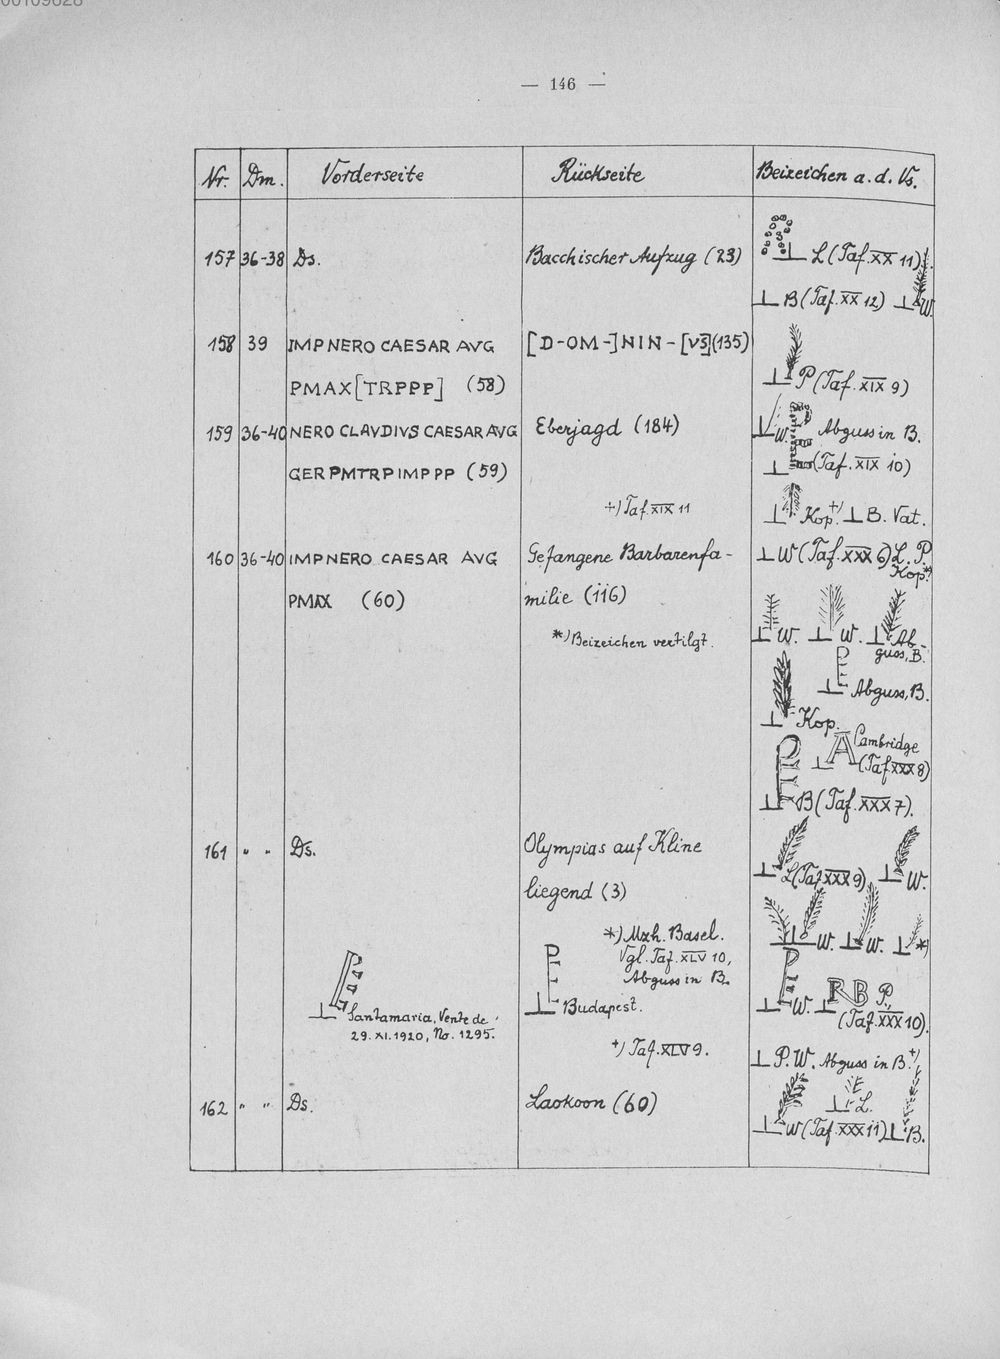 — 146 —
Nr. Dm. Vorderseite Rückseite Beizeichen a. d. Vs.
157 36-38 Ds. Bacchischer Aufzug (23) L (Taf. XX 11)
B (Taf. XX 12) W.
158 39 IMP NERO CAESAR AVG [D-OM-]NIN-[VS](135)
PMAX[TRPPP] (58) P (Taf. XIX 9)
159 36-40 NERO CLAVDIVS CAESAR AVG Eberjagd (184) W. Abguss in B.
GER PMTRP IMP PP (59) (Taf. XIX 10)
+) Taf. XIX 11 Kop.+) B. Vat.
160 36-40 IMP NERO CAESAR AVG Gefangene Barbarenfa- W (Taf. XXX 6) L. P.
Kop.*)
PMAX (60) milie (116)
*) Beizeichen vertilgt. W. W. Ab-
guss, B.
PE Abguss, B.
Kop.
A Cambridge
(Taf. XXX 8)
PE B (Taf. XXX 7).
161 " " Ds. Olympias auf Kline
liegend (3) L (Taf XXX 9) W.
*) Mzh. Basel. W. W. *)
Vgl. Taf. XLV 10,
Abguss in B.
PE Santamaria, Vente de PE Budapest. PE W. RB P.
29. XI. 1920, No. 1295. (Taf. XXX 10).
+) Taf. XLV 9. P. W. Abguss in B.+)
162 " " Ds. Laokoon (60) L.
W (Taf. XXX 11) B.